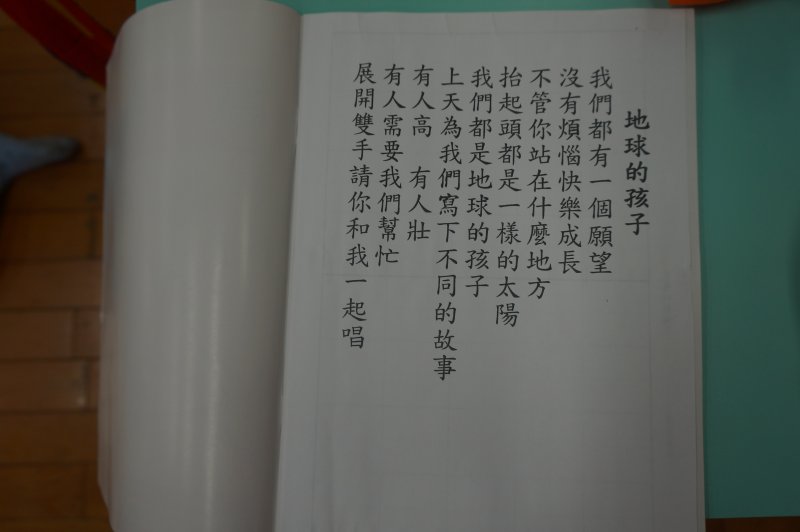 地球的孩子
我們都有一個願望
沒有煩惱快樂成長
不管你站在什麼地方
抬起頭都是一樣的太陽
我們都是地球的孩子
上天為我們寫下不同的故事
有人高　有人壯
有人需要我們幫忙
展開雙手請你和我一起唱